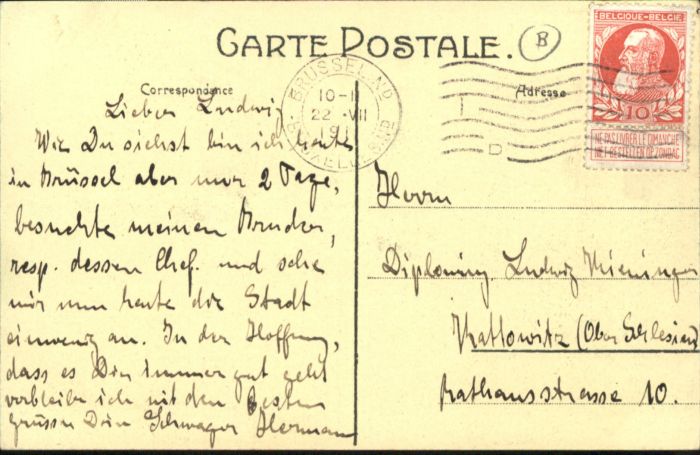 CARTE POSTALE.
B
BELGIQUE-BELGIE
10
NE PAS LIVRER LE DIMANCHE
NIET BESTELLEN OP ZONDAG
BRUSSEL
10-
22 VII
19
D
Correspondance
Adresse
Lieber Ludwig
Wie Du siehst bin ich heute
in Brüssel aber nur 2 Tage,
besuchte meinen Bruder,
resp. dessen Chef. und sehe
mir nun heute die Stadt
einwenig an. In der Hoffnung,
dass es Dir immer gut geht
verbleibe ich mit den besten
grüssen Dein Schwager Hermann
Herrn
Diploming Ludwig
Kattowitz (Ober Schlesien)
Rathausstrasse 10.